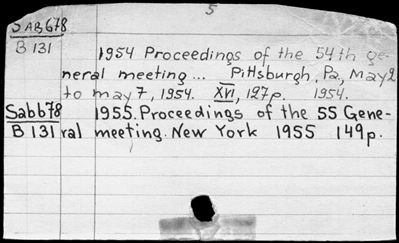 5
SAB678
B 131
1954 Proceedings of the 54th ge-
neral meeting... Pittsburgh, Pa, May 2
to may 7, 1954. XVI, 127p. 1954.
Sabb78 1955. Proceedings of the 55 Gene-
B 131 ral meeting. New York 1955 149p.